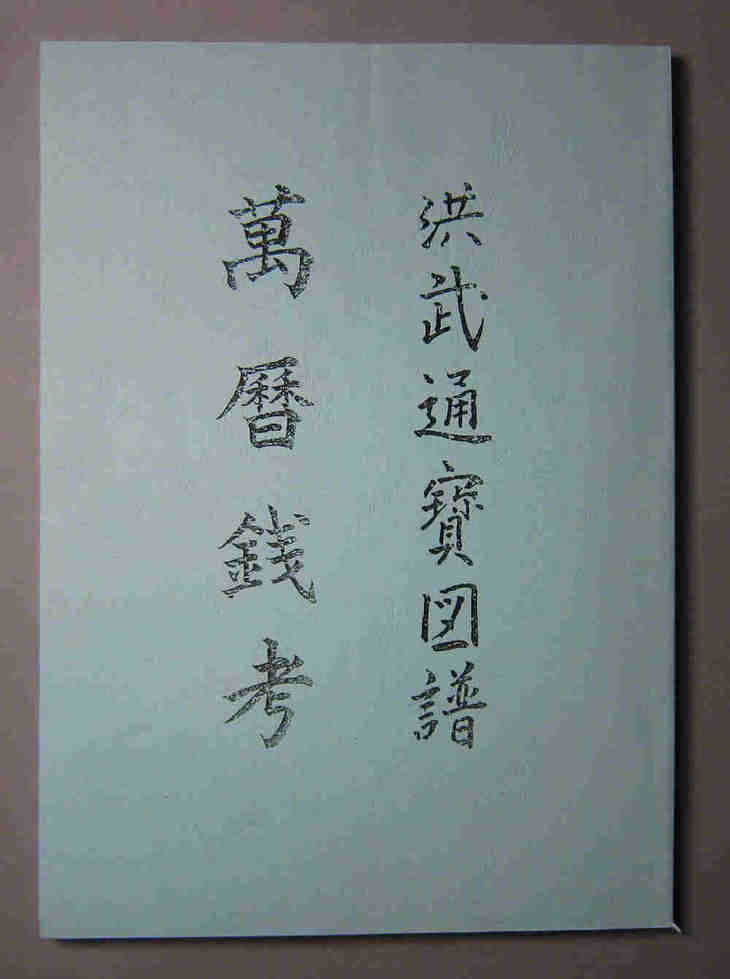 洪武通寶図譜
萬暦銭考